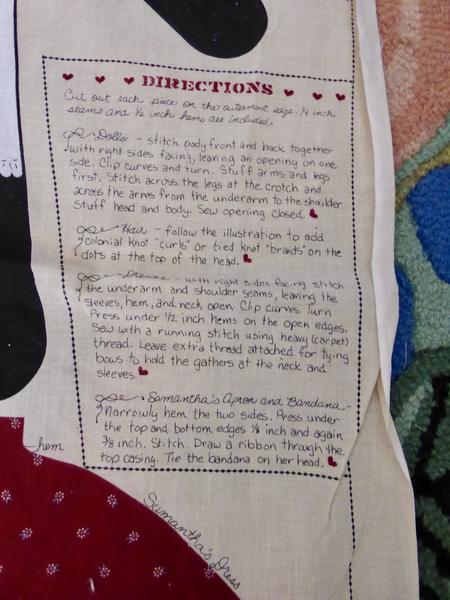 DIRECTIONS
Cut out each piece on the outermost edge. ¼ inch
seams and ½ inch hems are included.
Dolls - stitch body front and back together
with right sides facing, leaving an opening on one
side. Clip curves and turn. Stuff arms and legs
first. Stitch across the legs at the crotch and
across the arms from the underarm to the shoulder.
Stuff head and body. Sew opening closed.
Hair - follow the illustration to add
colonial knot "curls" or tied knot "braids" on the
dots at the top of the head.
Dresses - with right sides facing stitch
the underarm and shoulder seams, leaving the
sleeves, hem, and neck open. Clip curves. Turn
Press under ½ inch hems on the open edges.
Sew with a running stitch using heavy (carpet)
thread. Leave extra thread attached for tying
bows to hold the gathers at the neck and
sleeves.
Samantha's Apron and Bandana -
Narrowly hem the two sides. Press under
the top and bottom edges ⅛ inch and again
⅜ inch. Stitch. Draw a ribbon through the
top casing. Tie the bandana on her head.
hem
Samantha's Dress